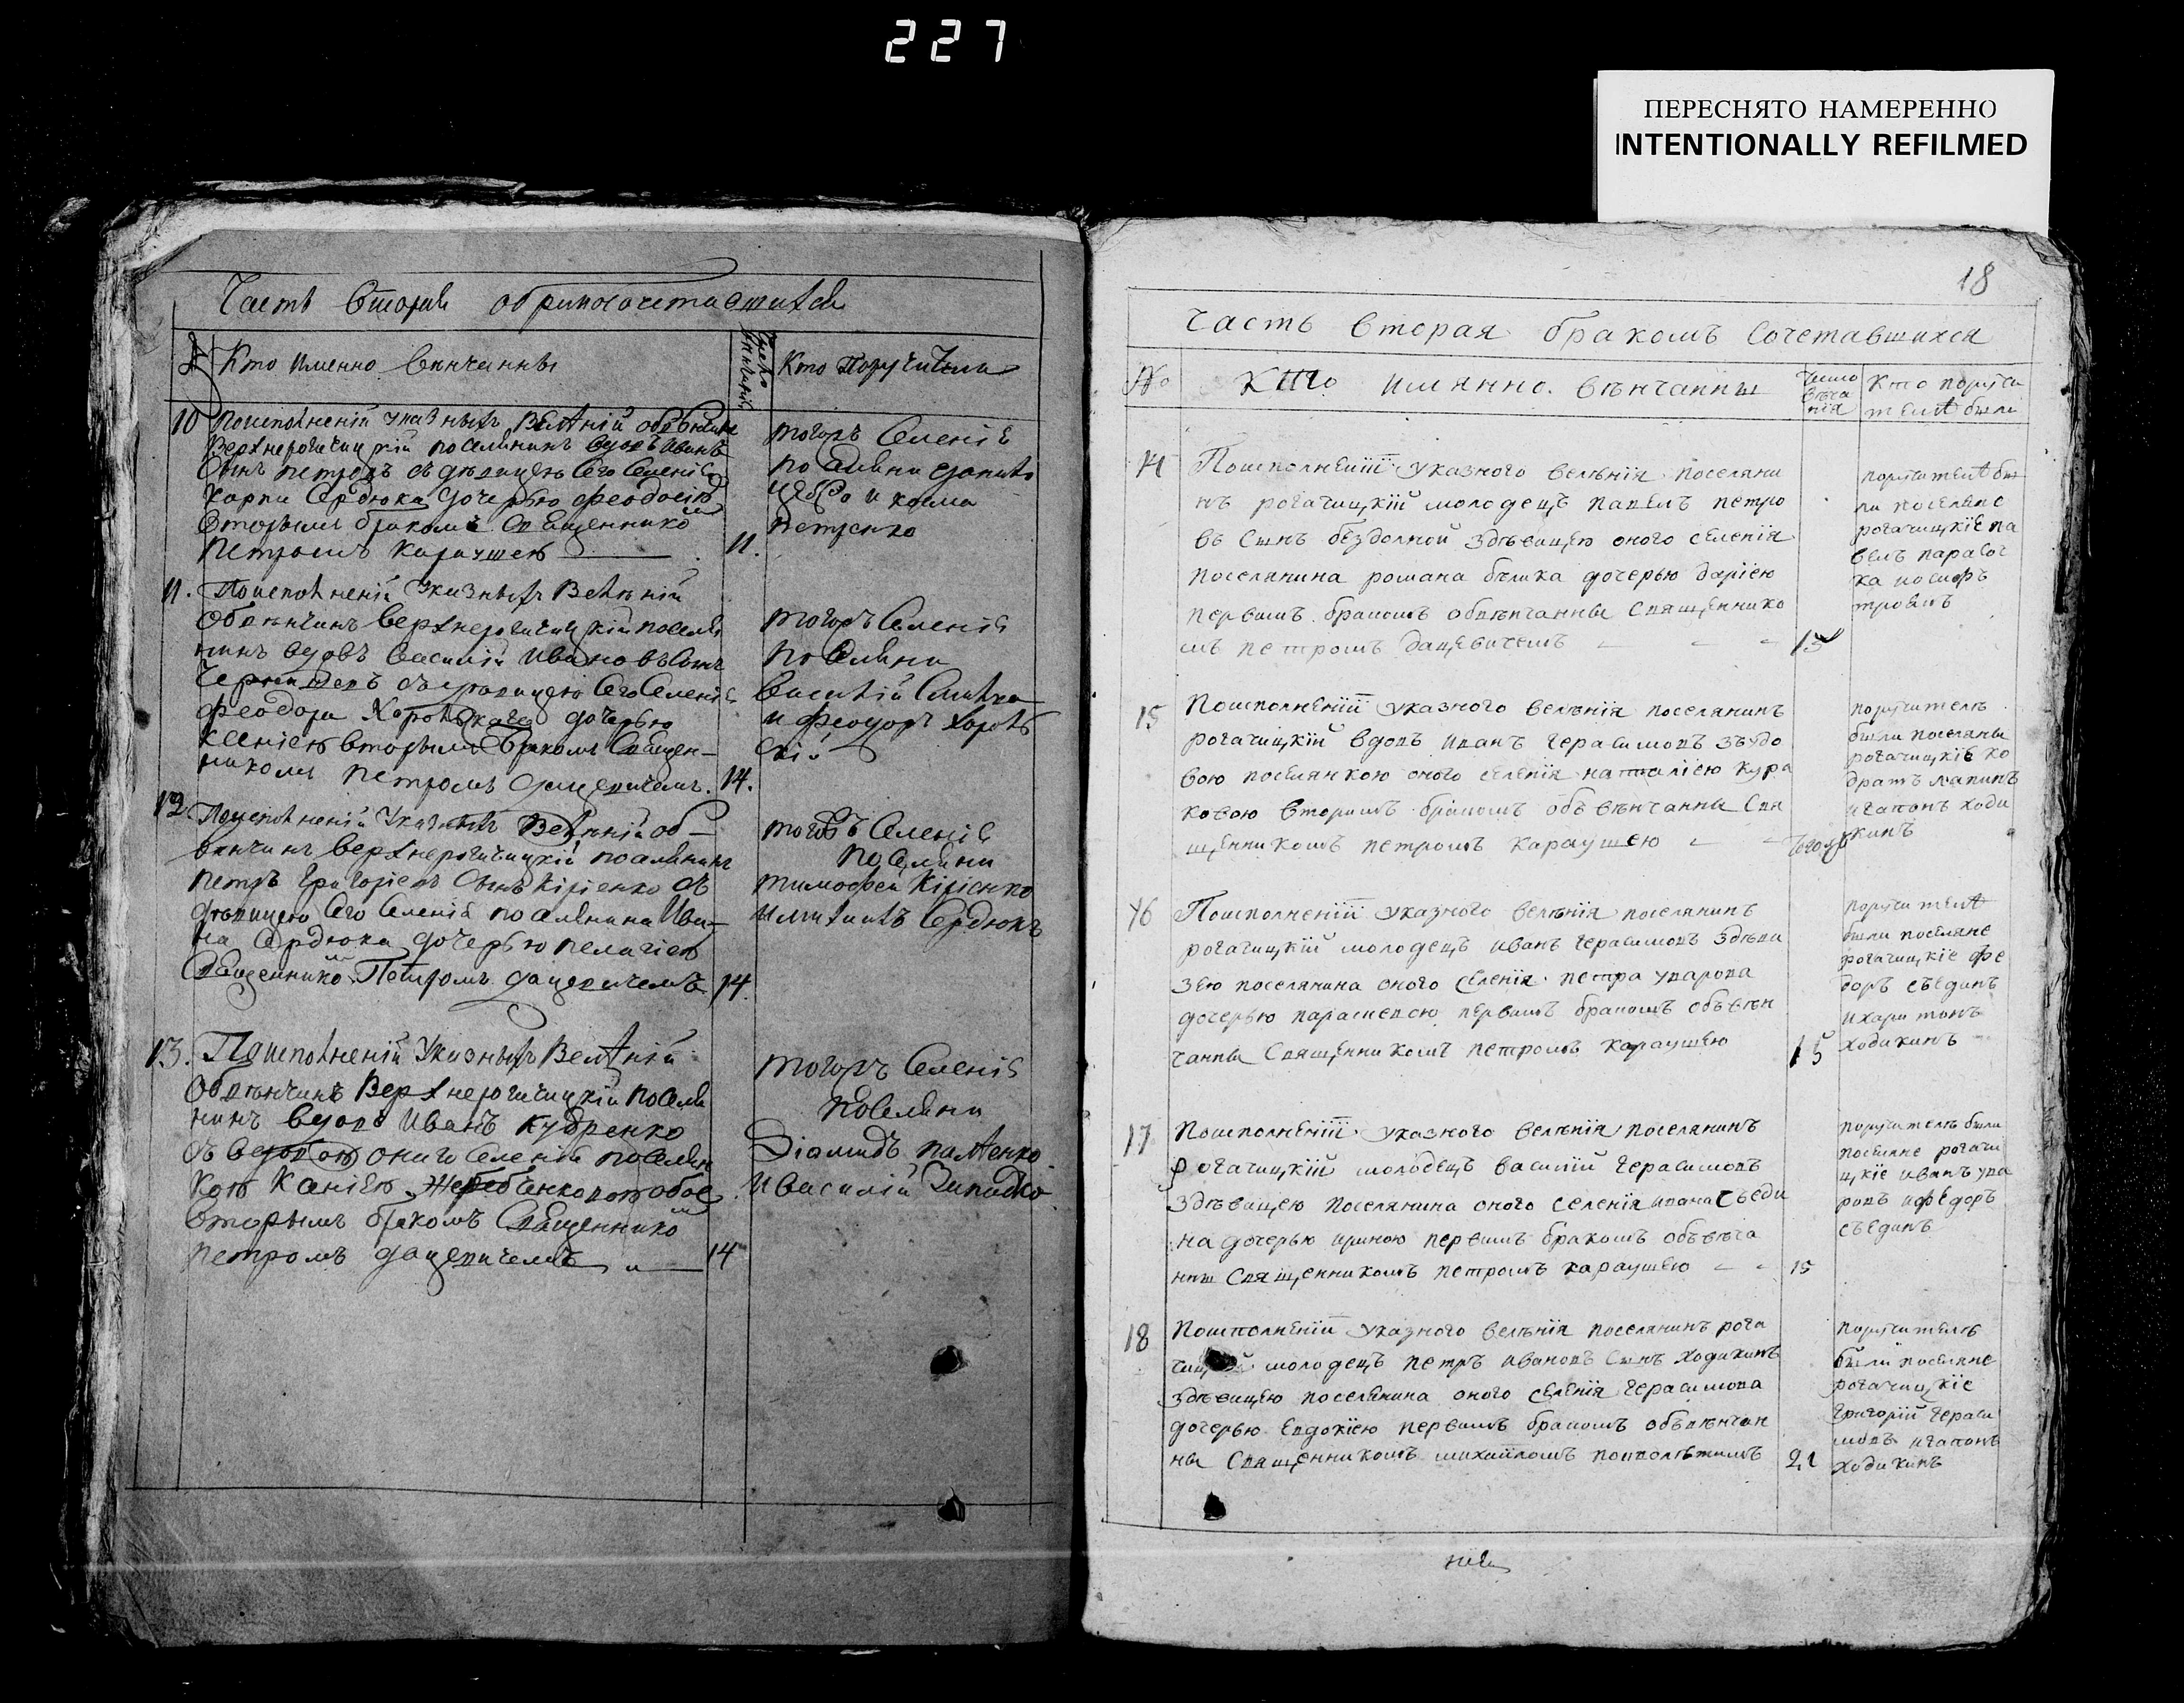 227
ПЕРЕСНЯТО НАМЕРЕННО
INTENTIONALLY REFILMED
Часть вторая
№ Кто именно венчанны
Число венчаній
Кто поручители
10 Поисполненій указныхъ велѣній обвѣнчанъ
Верхнерогачицкій поселянинъ вдовъ Иванъ
сынъ Петровъ съ дѣвицею его селенія
Карпа Сердюка дочерью Феодосіею
вторымъ бракомъ священникомъ
Петромъ Караушею 11.
тогожъ селенія
поселяни
и козма
петренко
11. Поисполненій указныхъ велѣній
обвѣнчанъ верхнерогачицкій поселя
нинъ вдовъ Василій Ивановъ сынъ
съ дѣвицею его селенія
Феодора дочерью
Ксеніею вторымъ бракомъ священ-
никомъ Петромъ Дацевичемъ. 14.
тогожъ селенія
поселяни
Василій
и Феодоръ Хоров
скій
12 Поисполненій указныхъ велѣній об-
вѣнчанъ верхнерогачицкій поселянинъ
Петръ Григоріевъ сынъ Кірієнко съ
дѣвицею его селенія поселянина Ива-
на Сердюка дочерью Пелагіею
священникомъ Петромъ Дацевичемъ 14.
тогожъ селенія
поселяни
тимофей Кірієнко
и Сердюкъ
13. Поисполненій указныхъ велѣній
обвѣнчанъ Верхнерогачицкій поселя
нинъ вдовъ Иванъ Кудренко
съ вдовою оного селенія поселян
кою
вторымъ бракомъ священникомъ
Петромъ Дацевичемъ 14
тогожъ селенія
поселяни
Діамидъ палѣенко
и василій
18
Часть вторая бракомъ сочетавшихся
№ Кто имянно вѣнчанны
число вѣнча
нія
Кто поручи
тели были
14 Поисполненіи указного велѣнія поселяни
нъ рогачицкій молодецъ павелъ петро
въ сынъ бездолной здѣвицею оного селенія
поселянина романа бѣлика дочерью даріею
первымъ бракомъ обвѣнчанны священнико
мъ петромъ дацевичемъ 15
поручители бы
ли поселяне
рогачицкіе па
велъ парасоч
ка
15 Поисполненіи указного велѣнія поселянинъ
рогачицкій вдовъ иванъ герасимовъ зъвдо
вою поселянкою оного селенія наталіею кура
ковою вторымъ бракомъ обвѣнчанны свя
щенникомъ петромъ караушею тогожъ
поручители
были поселяне
рогачицкіе ко
дратъ лапинъ
игапонъ ходи
кинъ
16 Поисполненіи указного велѣнія поселянинъ
рогачицкій молодецъ иванъ герасимовъ здѣви
зею поселянина оного селенія петра уварова
дочерью параскевою первымъ бракомъ обьвѣн
чанны священникомъ петромъ караушею 15
поручители
были поселяне
рогачицкіе фе
доръ съединъ
ихаритонъ
ходикинъ
17 Поисполненіи указного велѣнія поселянинъ
рогачицкій молодецъ василій герасимовъ
здѣвицею поселянина оного селенія ивана съеди
на дочерью ириною первымъ бракомъ обьвѣча
нны священникомъ петромъ караушею 15
поручители были
поселяне рогачи
цкіе иванъ ува
ровъ ифедоръ
съединъ
18 Поисполненіи указного велѣнія поселянинъ рога
чицкій молодецъ петръ ивановъ сынъ ходикинъ
здѣвицею поселянина оного селенія герасимова
дочерью евдокіею первымъ бракомъ обьвѣнчан
ны священникомъ михаиломъ 21
поручители
были поселяне
рогачицкіе
григорій гераси
мовъ игапонъ
ходикинъ